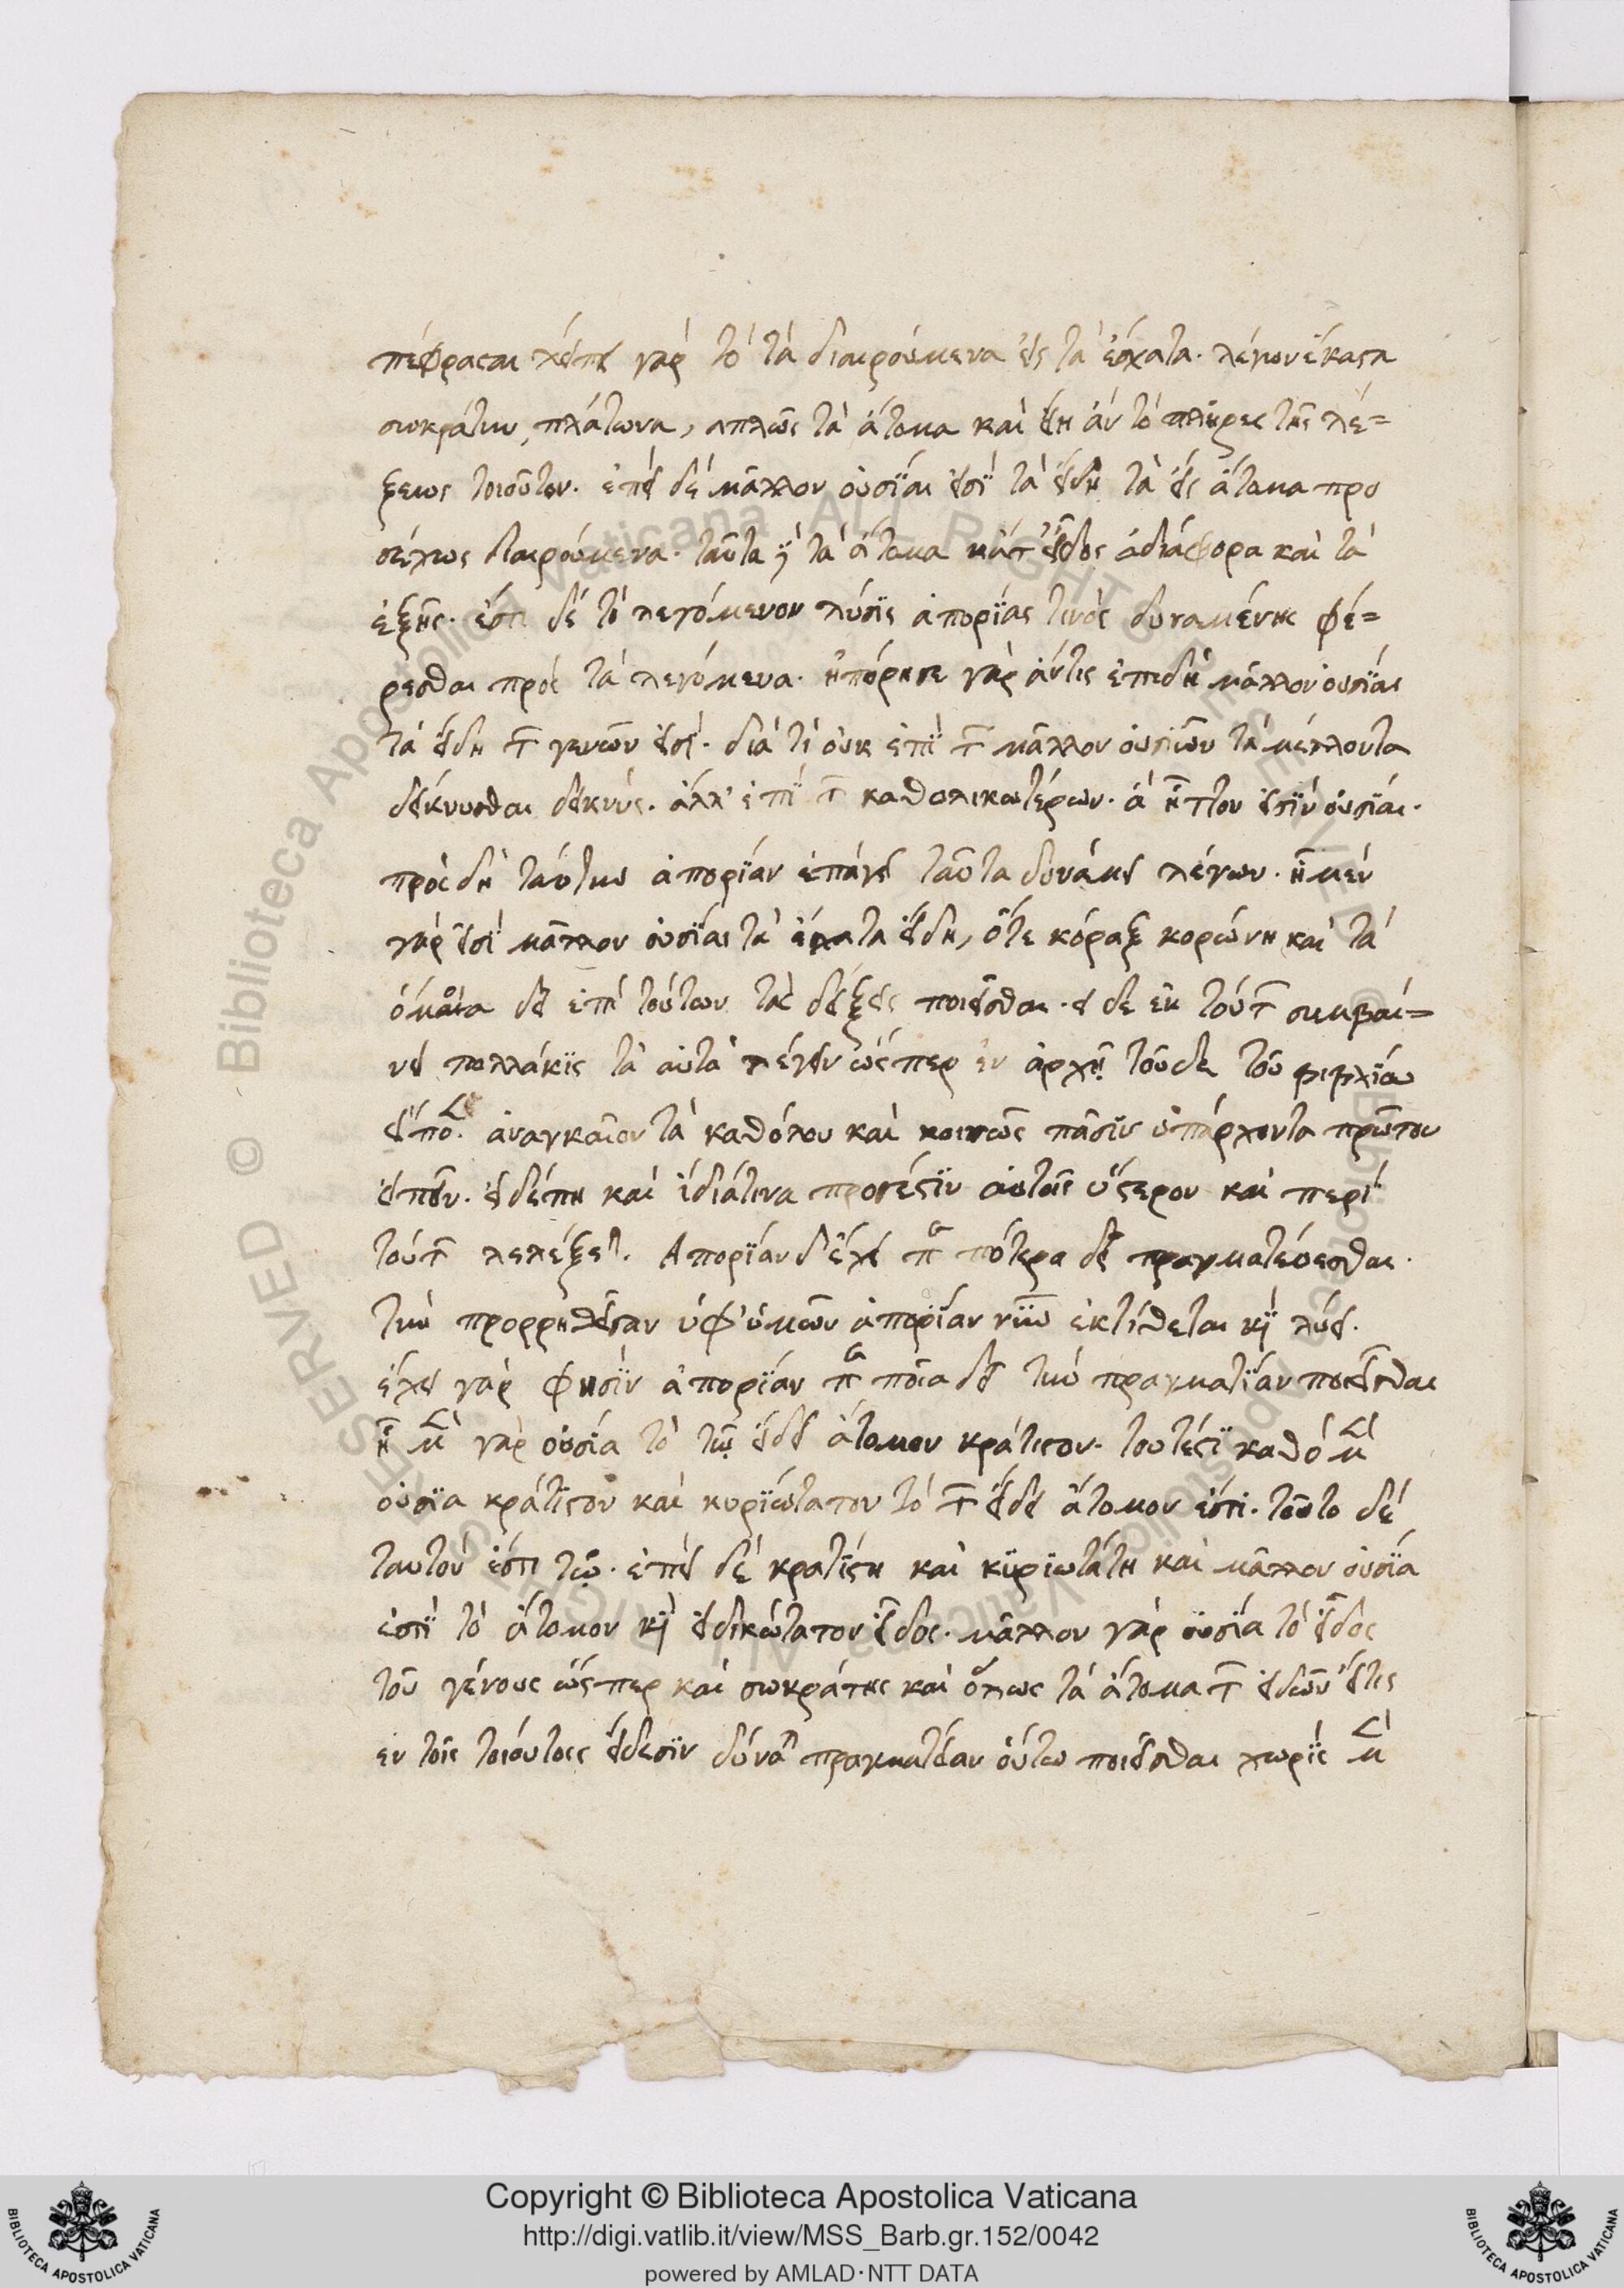 πέφρασται λείπει γὰρ τὸ τὰ διαιρούμενα εἰς τὰ ἔσχατα. λέγων ἕκαστα
σωκράτην, πλάτωνα, ἁπλῶς τὰ ἄτομα καὶ εἴη ἂν τὸ πλῆρες τῆς λέ=
ξεως τοιοῦτον. ἐπεὶ δὲ μᾶλλον οὐσΐαι εἰσῒ τὰ εἴδη τὰ εἰς ἄτομα προ
σέχως διαιρούμενα. ταῦτα ἤ τὰ ἄτομα κατ' εἶδος ἀδιάφορα καὶ τὰ
ἑξῆς. ἔστι δὲ τὸ λεγόμενον λύσϊς ἀπορΐας τινὸς δυναμένης φέ=
ρεσθαι πρὸς τὰ λεγόμενα. ἠπόρησε γὰρ ἄν τις ἐπειδὴ μᾶλλον οὐσΐαι
τὰ εἴδη τῶν γενῶν εἰσΐ. διὰ τί οὐκ ἐπῒ τῶν μᾶλλον οὐσιῶν τὰ μέλλοντα
δείκνυσθαι δείκνυς. ἀλλ' ἐπῒ τῶν καθολικωτέρων. ἃ ἧττον εἰσῒν οὐσΐαι.
πρὸς δὴ ταύτην ἀπορΐαν ἐπάγει ταῦτα δυνάμει λέγων. ἦ μὲν
γὰρ εἰσΐ μᾶλλον οὐσΐαι τὰ ἔσχατα εἴδη, ὅτε κόραξ κορώνη καὶ τὰ
ὅμοια δεῖ ἐπῒ τούτων τὰς δείξεις ποιεῖσθαι. εἰ δὲ ἐκ τούτων συμβαί=
νει πολλάκϊς τὰ αὐτὰ λέγειν ὥσπερ ἐν ἀρχῇ τοῦδε τοῦ βιβλΐου
εἴπομεν. ἀναγκαῖον τὰ καθόλου καὶ κοινῶς πᾶσϊν ὑπάρχοντα πρῶτον
εἰπεῖν. εἰ δέ πη καὶ ἴδιά τινα πρόσεστϊν αὐτοῖς ὕστερον καὶ περῒ
τούτων λελέξεται. Ἀπορΐαν δ' ἔχει περὶ πότερα δεῖ πραγματεύεσθαι.
τὴν προρρηθεῖσαν ὑφ' ἡμῶν ἀπορΐαν νῦν ἐκτίθεται καῒ λύει.
ἔχει γὰρ φησῒν ἀπορΐαν περὶ ποῖα δεῖ τὴν πραγματΐαν ποιεῖσθαι
ἦ μὲν γὰρ οὐσία τὸ τῷ εἴδει ἄτομον κράτιστον. τουτέστϊ καθὸ μὲν
οὐσϊα κράτϊστον καὶ κυρϊώτατον τὸ τῶν εἴδει ἄτομον ἐστι. τοῦτο δὲ
ταυτόν ἐστι τῷ. ἐπεὶ δὲ κρατΐστη καὶ κϋρϊωτάτη καὶ μᾶλλον οὐσΐα
ἐστῒ τὸ ἄτομον καῒ εἰδικώτατον εἶδος. μᾶλλον γὰρ οὐσΐα τὸ εἶδος
τοῦ γένους ὥσπερ καὶ σωκράτης καὶ ὅλως τὰ ἄτομα τῶν εἰδῶν εἴ τις
ἐν τοῖς τοιούτοις εἴδεσϊν δύναται πραγματείαν οὕτω ποιεῖσθαι χωρῒς μὲν
Copyright © Biblioteca Apostolica Vaticana
http://digi.vatlib.it/view/MSS_Barb.gr.152/0042
powered by AMLAD·NTT DATA